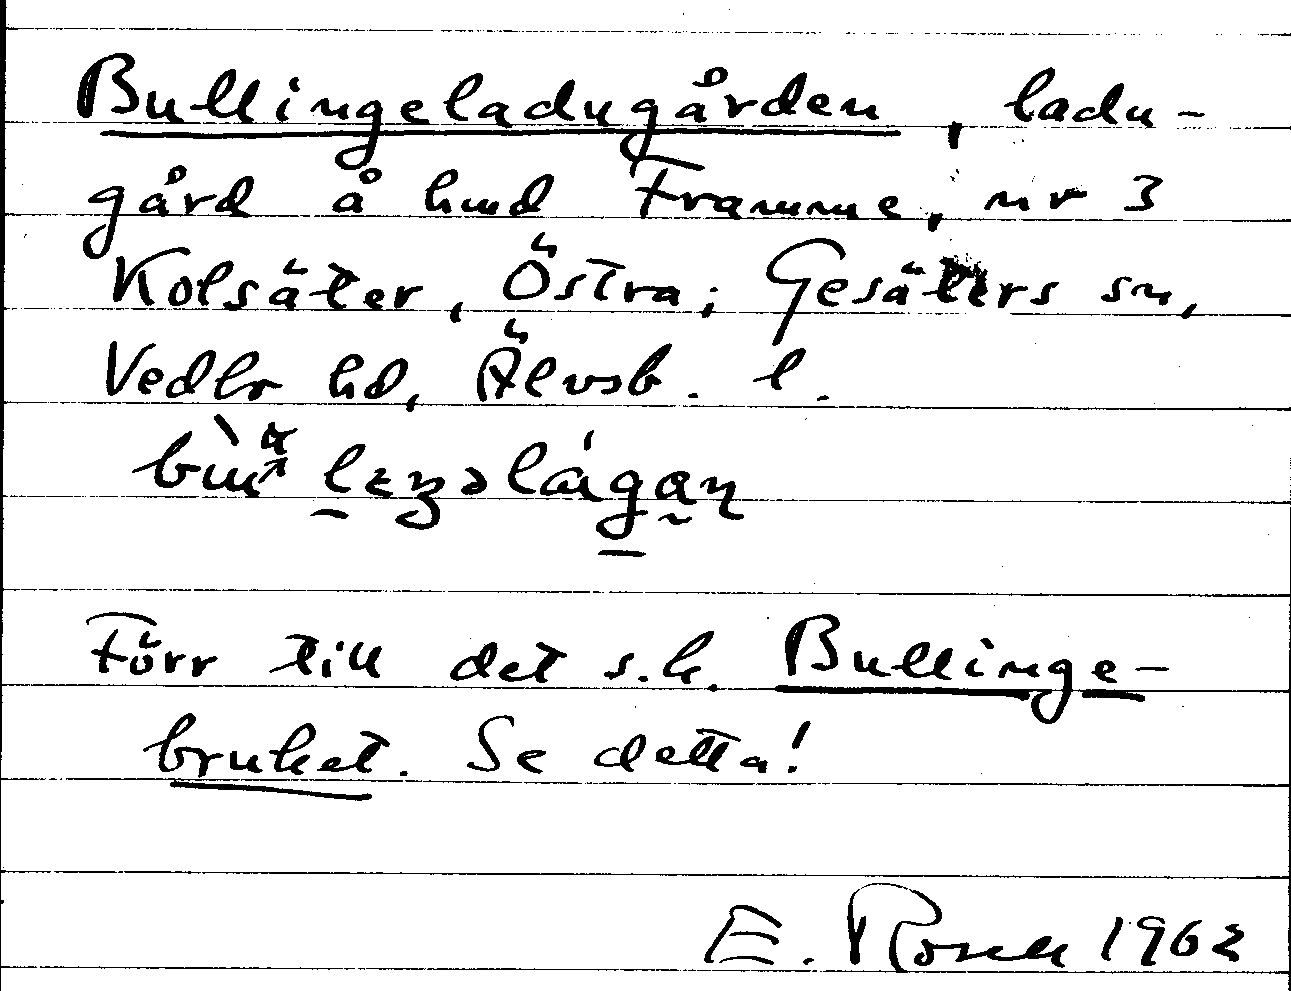 Bullingeladugården, ladu-
gård å hmd Framme, nr 3
Kolsäter, Östra; Gesäters sn,
Vedbo hd, Älvsb. l.
Förr till det s.k. Bullinge-
bruket. Se detta!
E. Rosell 1962